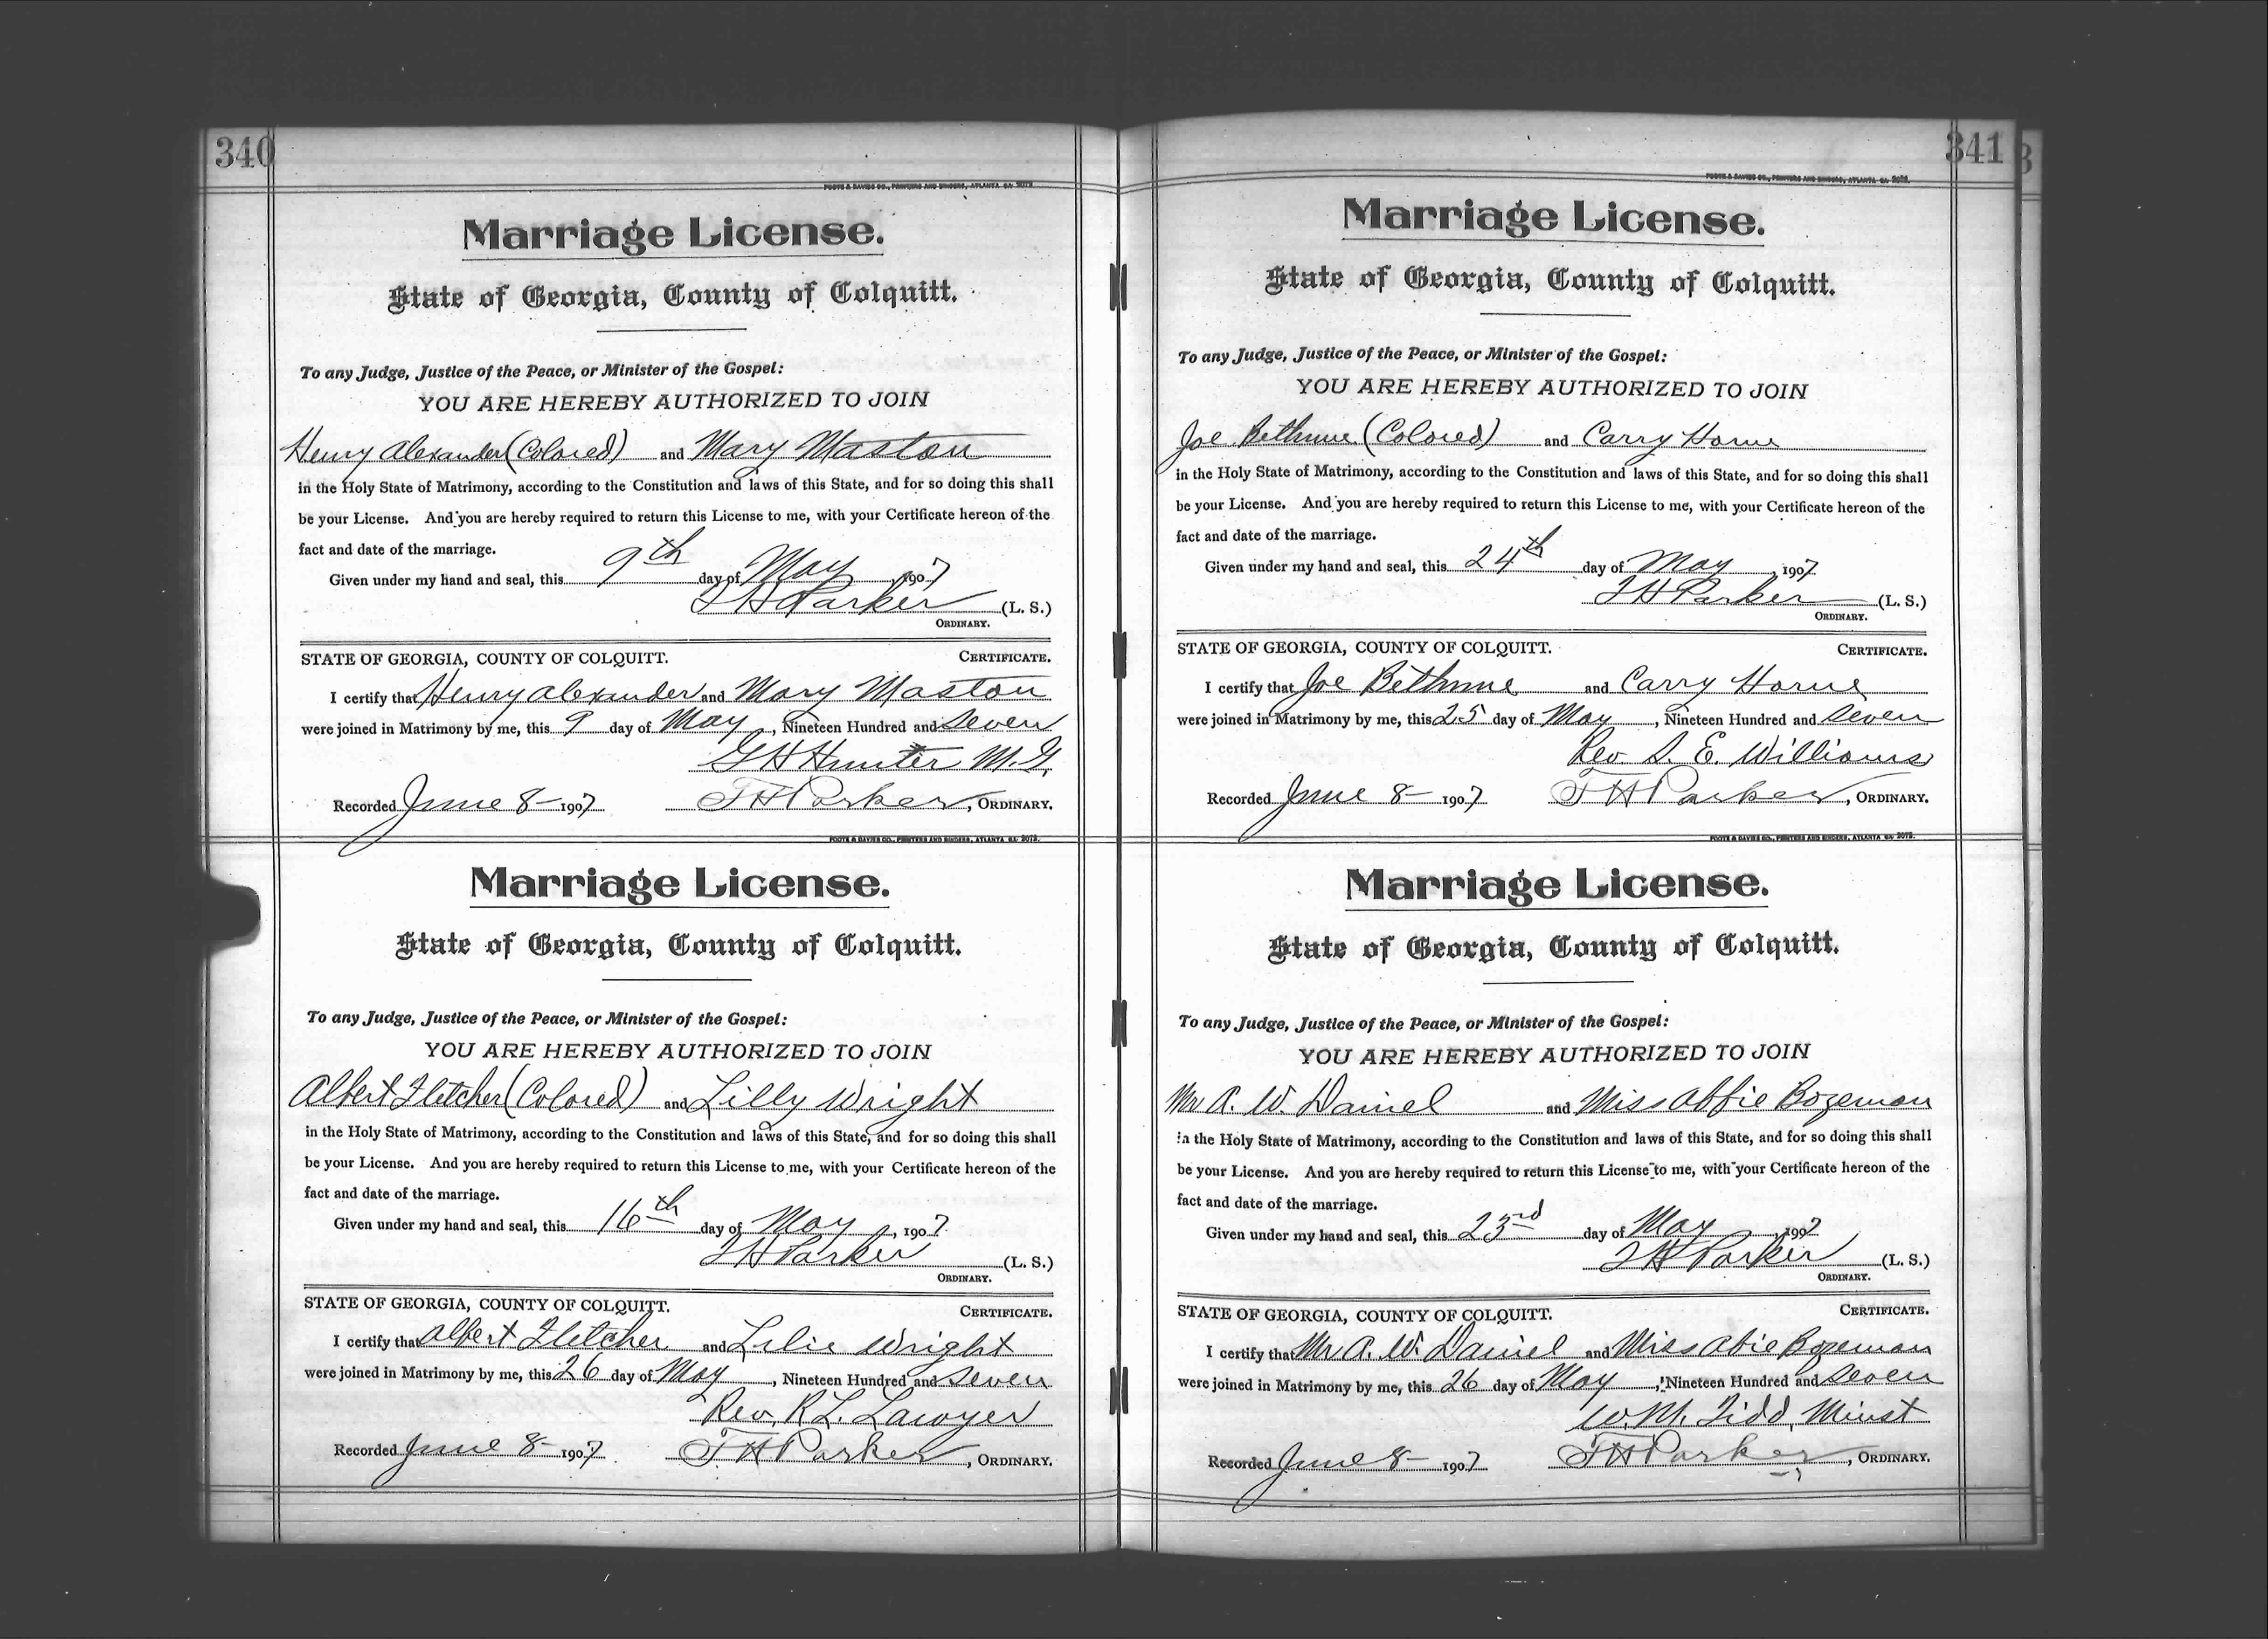 340
FOOTE & DAVIES CO., PRINTERS AND BINDERS, ATLANTA GA. 2072
Marriage License.
State of Georgia, County of Colquitt.
To any Judge, Justice of the Peace, or Minister of the Gospel:
YOU ARE HEREBY AUTHORIZED TO JOIN
Henry Alexander (Colored) and Mary Maston
in the Holy State of Matrimony, according to the Constitution and laws of this State, and for so doing this shall
be your License. And you are hereby required to return this License to me, with your Certificate hereon of the
fact and date of the marriage.
Given under my hand and seal, this 9th day of May, 1907
T H Parker (L. S.)
ORDINARY.
STATE OF GEORGIA, COUNTY OF COLQUITT. CERTIFICATE.
I certify that Henry Alexander and Mary Maston
were joined in Matrimony by me, this 9 day of May, Nineteen Hundred and Seven
G H Hunter M.G.
Recorded June 8 - 1907 T H Parker, ORDINARY.
FOOTE & DAVIES CO., PRINTERS AND BINDERS, ATLANTA GA. 2072.
Marriage License.
State of Georgia, County of Colquitt.
To any Judge, Justice of the Peace, or Minister of the Gospel:
YOU ARE HEREBY AUTHORIZED TO JOIN
Albert Fletcher (Colored) and Lilly Wright
in the Holy State of Matrimony, according to the Constitution and laws of this State, and for so doing this shall
be your License. And you are hereby required to return this License to me, with your Certificate hereon of the
fact and date of the marriage.
Given under my hand and seal, this 16th day of May, 1907.
T H Parker (L. S.)
ORDINARY.
STATE OF GEORGIA, COUNTY OF COLQUITT. CERTIFICATE.
I certify that Albert Fletcher and Lilie Wright
were joined in Matrimony by me, this 26 day of May, Nineteen Hundred and Seven
Rev. R L. Lawyer
Recorded June 8 - 1907. T H Parker, ORDINARY.
341
FOOTE & DAVIES CO., PRINTERS AND BINDERS, ATLANTA GA. 2072.
Marriage License.
State of Georgia, County of Colquitt.
To any Judge, Justice of the Peace, or Minister of the Gospel:
YOU ARE HEREBY AUTHORIZED TO JOIN
Joe Bethune (Colored) and Carry Horne
in the Holy State of Matrimony, according to the Constitution and laws of this State, and for so doing this shall
be your License. And you are hereby required to return this License to me, with your Certificate hereon of the
fact and date of the marriage.
Given under my hand and seal, this 24th day of May, 1907.
T H Parker (L. S.)
ORDINARY.
STATE OF GEORGIA, COUNTY OF COLQUITT. CERTIFICATE.
I certify that Joe Bethune and Carry Horne
were joined in Matrimony by me, this 25 day of May, Nineteen Hundred and Seven
Rev S. E. Williams
Recorded June 8 - 1907 T H Parker, ORDINARY.
FOOTE & DAVIES CO., PRINTERS AND BINDERS, ATLANTA GA. 2072.
Marriage License.
State of Georgia, County of Colquitt.
To any Judge, Justice of the Peace, or Minister of the Gospel:
YOU ARE HEREBY AUTHORIZED TO JOIN
Mr A. W. Daniel and Miss Abbie Bozeman
in the Holy State of Matrimony, according to the Constitution and laws of this State, and for so doing this shall
be your License. And you are hereby required to return this License to me, with your Certificate hereon of the
fact and date of the marriage.
Given under my hand and seal, this 23rd day of May, 1907
T H Parker (L. S.)
ORDINARY.
STATE OF GEORGIA, COUNTY OF COLQUITT. CERTIFICATE.
I certify that Mr A. W. Daniel and Miss Abie Bozeman
were joined in Matrimony by me, this 26 day of May, Nineteen Hundred and Seven
W. M. Tidd, Minst
Recorded June 8 - 1907 T H Parker, ORDINARY.